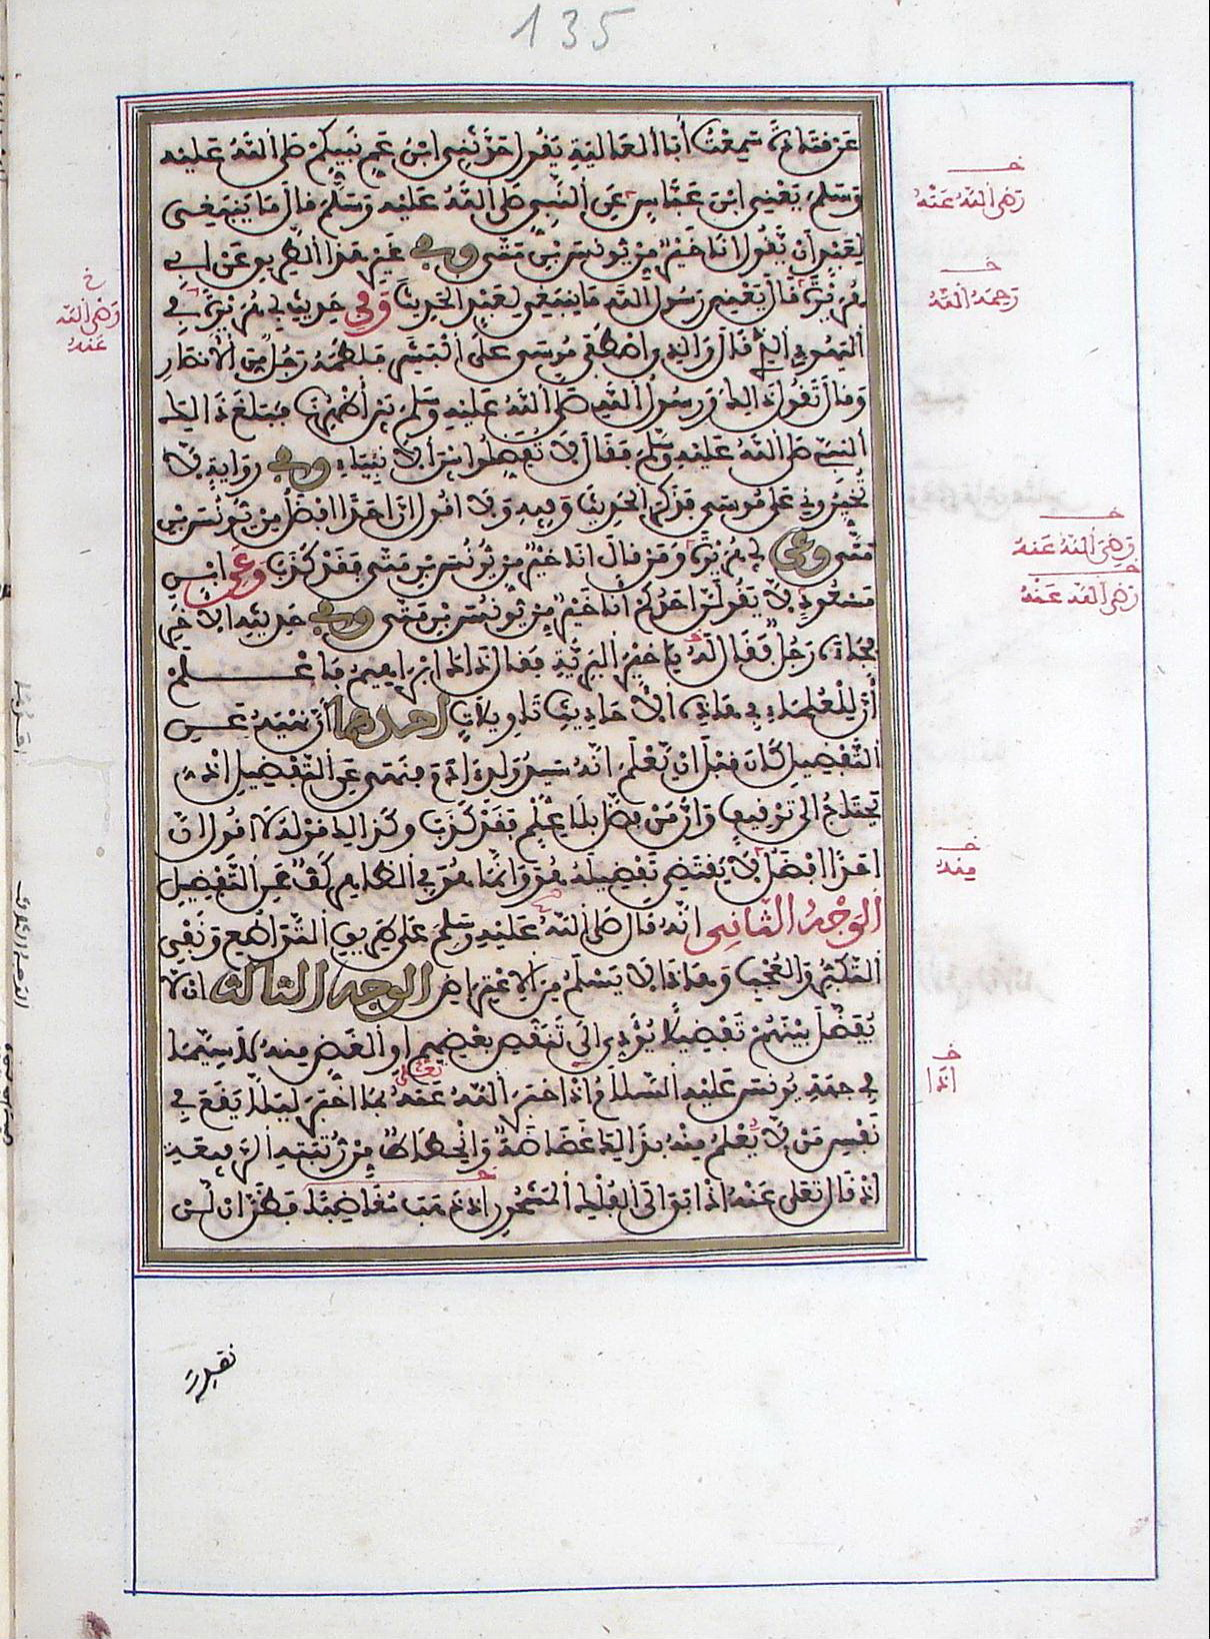 135
عن قتادة سمعت أبا العالية يقول حدثني ابن عم نبيكم صلى الله عليه
وسلم يعني ابن عباس عن النبي صلى الله عليه وسلم قال ما ينبغي
لعبد أن يقول أنا خير من يونس بن متى وفي غير هذا الطريق عن أبي
هريرة قال يعني رسول الله ما ينبغي لعبد الحديث وفي حديث أبي هريرة في
اليهودي الذي قال والذي اصطفى موسى على البشر فلطمه رجل من الأنصار
وقال تقول ذلك ورسول الله صلى الله عليه وسلم بين أظهرنا فبلغ ذلك
النبي صلى الله عليه وسلم فقال لا تفضلوا بين الأنبياء وفي رواية لا
تخيروني على موسى فذكر الحديث وفيه ولا أقول إن أحدا أفضل من يونس بن
متى وعن أبي هريرة ومن قال أنا خير من يونس بن متى فقد كذب وعن ابن
مسعود لا يقولن أحدكم أنا خير من يونس بن متى وفي حديثه الآخر
فجاءه رجل فقال له يا خير البرية فقال ذاك إبراهيم فاعلم
أن للعلماء في هذه الأحاديث تأويلات أحدها أن نهيه عن
التفضيل كان قبل أن يعلم أنه سيد ولد آدم فنهى عن التفضيل إذ
يحتاج إلى توقيف وأن من فضل بلا علم فقد كذب وكذلك قوله لا أقول إن
أحدا أفضل لا يقتضي تفضيله هو وإنما هو في الظاهر كف عن التفضيل
الوجه الثاني أنه قال صلى الله عليه وسلم على طريق التواضع ونفي
التكبر والعجب وهذا لا يسلم من الاعتراض الوجه الثالث أن لا
يفضل بينهم تفضيلا يؤدي إلى تنقص بعضهم أو الغض منه لا سيما
في جهة يونس عليه السلام إذا أخبر الله تعالى عنه بما أخبر ليلا يقع في
نفس من لا يعلم منه بذلك غضاضة وانحطاط من رتبته الرفيعة
إذ قال تعلى عنه إذ ابق إلى الفلك المشحون إذ ذهب مغاضبا فظن أن لن
نقدر
خـ
رضي الله عنه
خـ
رحمه الله
خ
رضي الله
عنه
خـ
رضي الله عنه
خـ
رضي الله عنه
خـ
منه
خـ
إذا